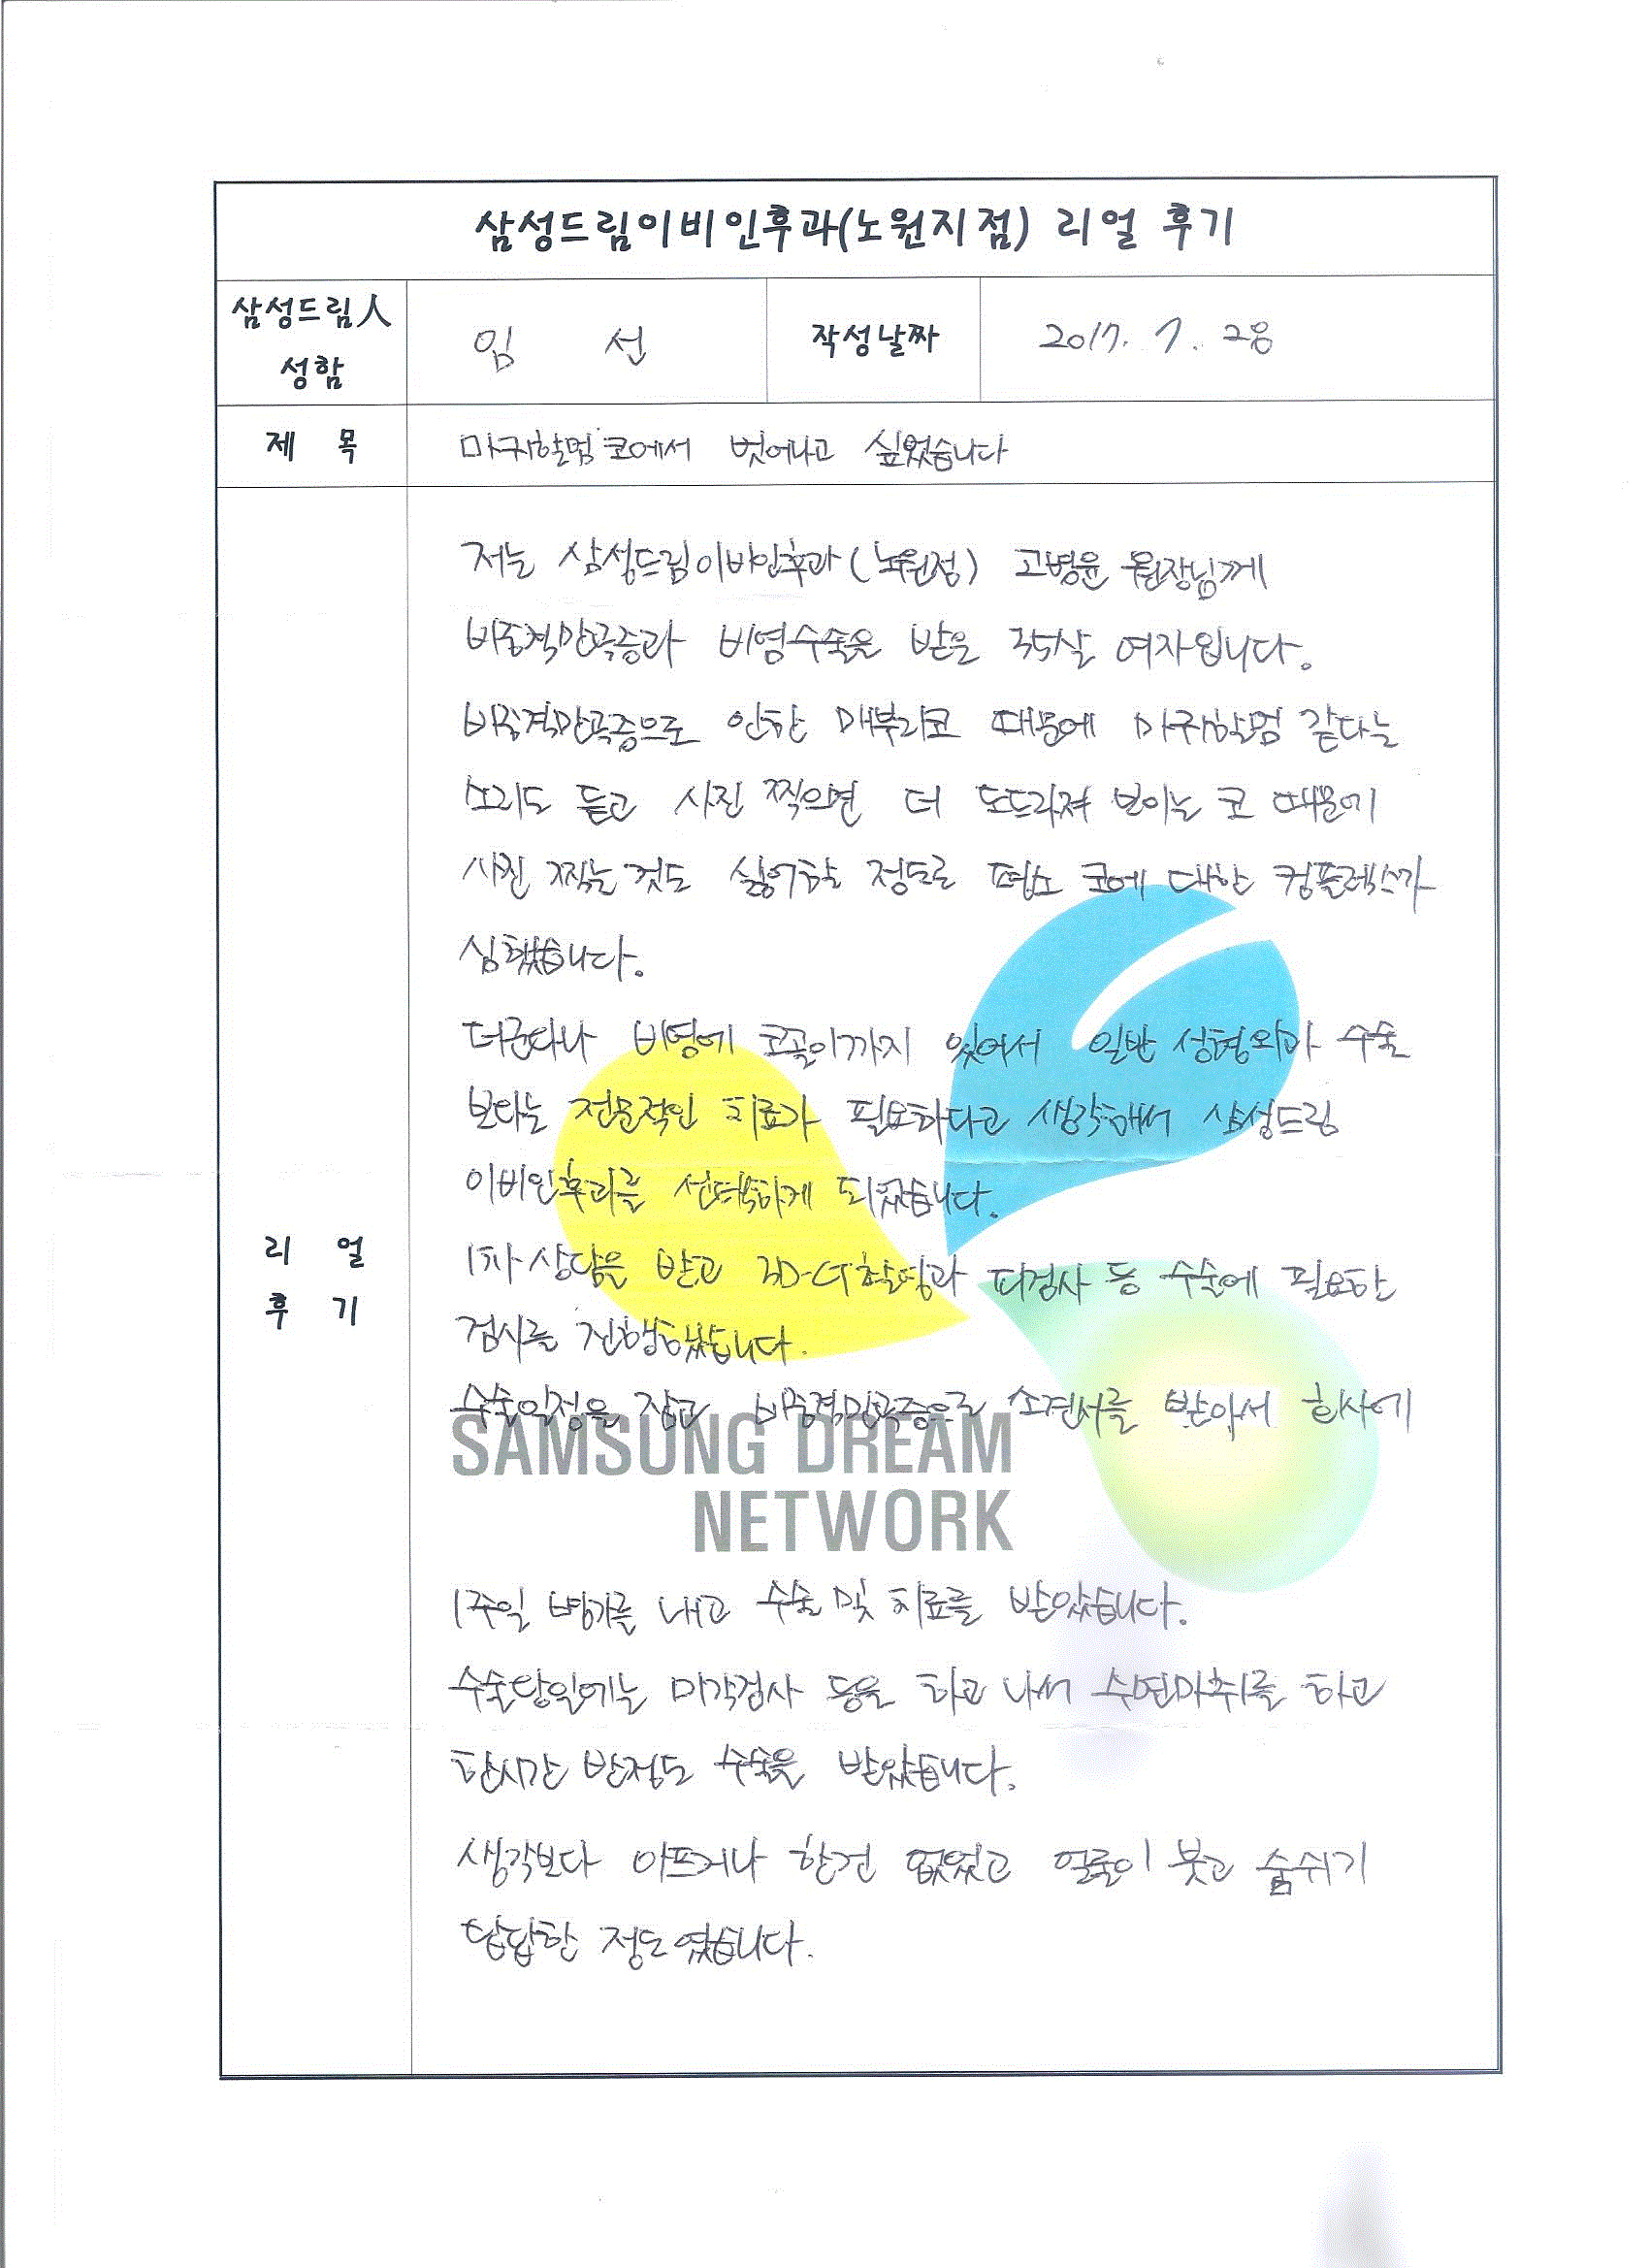 삼성드림이비인후과(노원지점) 리얼 후기
삼성드림人
성함
임 선
작성날짜
2017. 7. 28
제 목
마귀할멈 코에서 벗어나고 싶었습니다
저는 삼성드림이비인후과(노원점) 고병윤 원장님께
비중격만곡증과 비염수술을 받은 35살 여자입니다.
비중격만곡증으로 인한 매부리코 때문에 마귀할멈 같다는
소리도 듣고 사진 찍으면 더 도드라져 보이는 코 때문에
사진 찍는 것도 싫어할 정도로 평소 코에 대한 컴플렉스가
심했습니다.
더군다나 비염에 코골이까지 있어서 일반 성형외과 수술
보다는 전문적인 치료가 필요하다고 생각해서 삼성드림
이비인후과를 선택하게 되었습니다.
1차 상담을 받고 3D-CT촬영과 피검사 등 수술에 필요한
검사를 진행하였습니다.
수술일정을 잡고 비중격만곡증으로 소견서를 받아서 회사에
SAMSUNG DREAM
NETWORK
1주일 병가를 내고 수술 및 치료를 받았습니다.
수술당일에는 미각검사 등을 하고 나서 수면마취를 하고
한시간 반정도 수술을 받았습니다.
생각보다 아프거나 한건 없었고 얼굴이 붓고 숨쉬기
답답한 정도였습니다.
리 얼
후 기